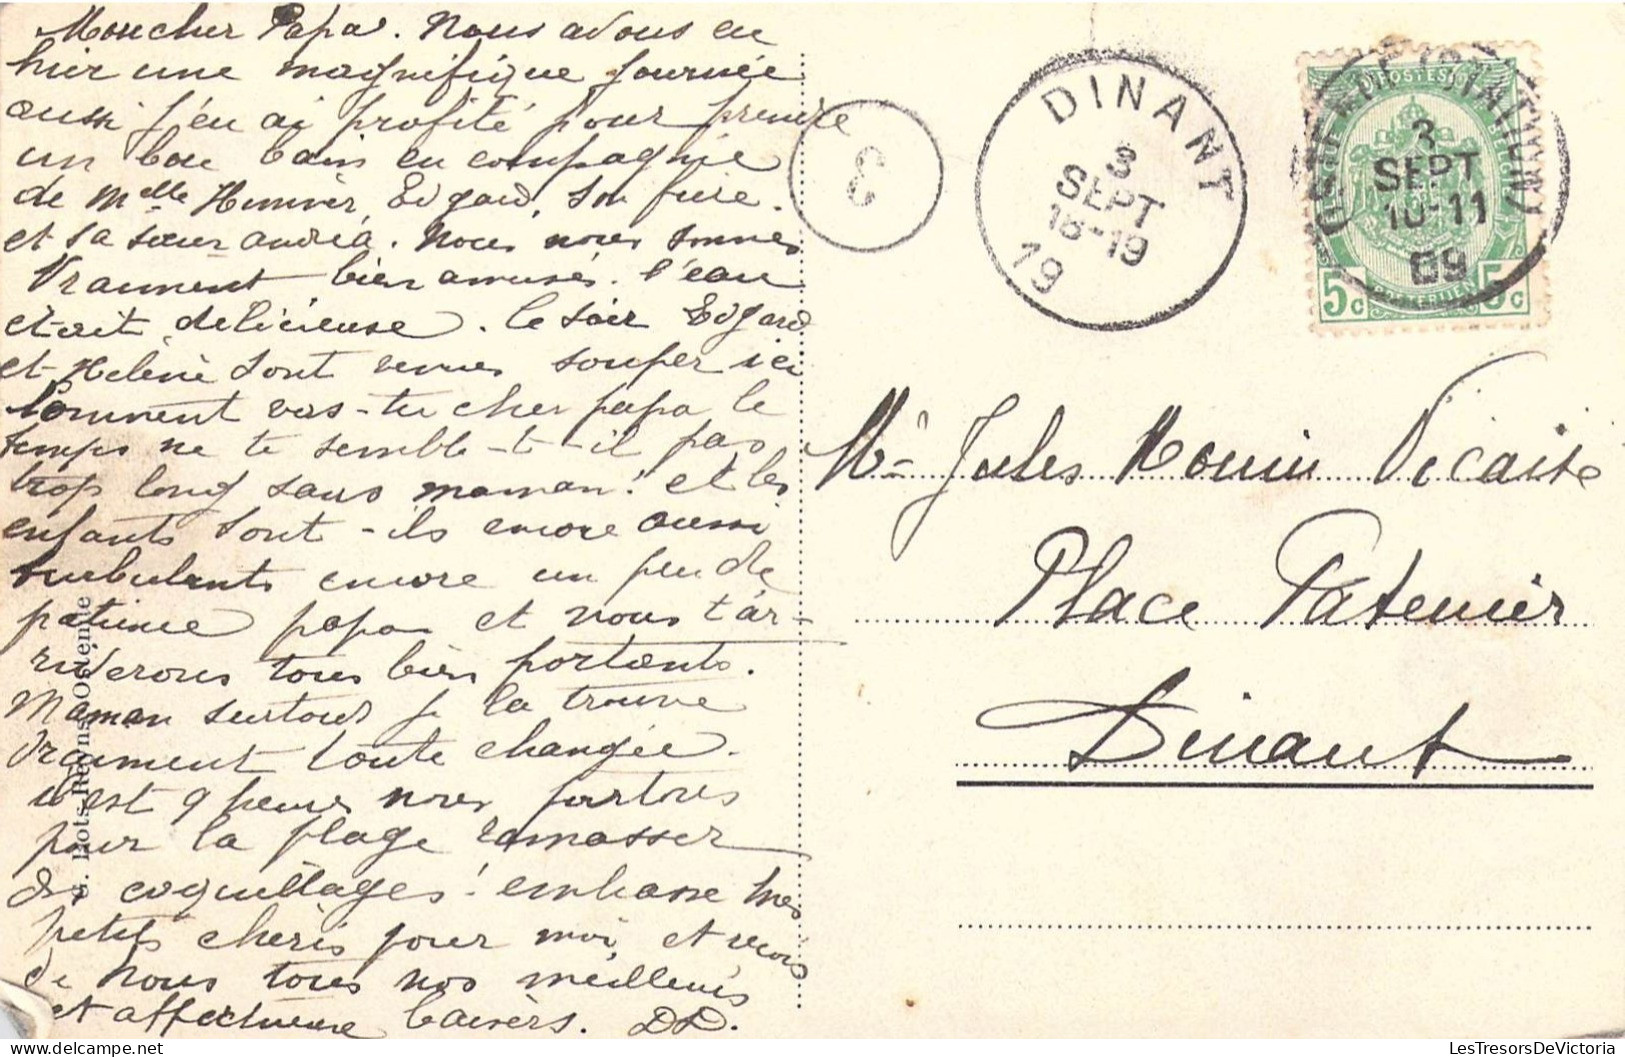 Mon cher Papa. Nous avons eu
hier une magnifique journée
aussi j'en ai profité pour prendre
un bon bain en compagnie
de Melle Edgard, son frère.
et sa sœur andréa. Nous nous sommes
Vraiment bien amusés. l'eau
était délicieuse. le soir Edgard
et Helène sont venus souper ici
Comment vas-tu cher papa le
temps ne te semble-t-il pas
trop long sans maman! et les
enfants sont-ils encore aussi
turbulents encore un peu de
patience papa et nous t'ar-
riverons tous bien portants.
Maman surtout je la trouve
vraiment toute changée.
il est 9 heures nous partons
pour la plage ramasser
des coquillages! embrasse mes
petits chéris pour moi et reçois
de nous tous nos meilleurs
et affectueux baisers. DD.
Dots-Reyns Ostende
3
DINANT
3
SEPT
18-19
19
POSTES
BELGIQUE
3
SEPT
10-11
09
5c 5c
Mr Jules Monin Vicaire
Place Patenier
Dinant
LesTresorsDeVictoria